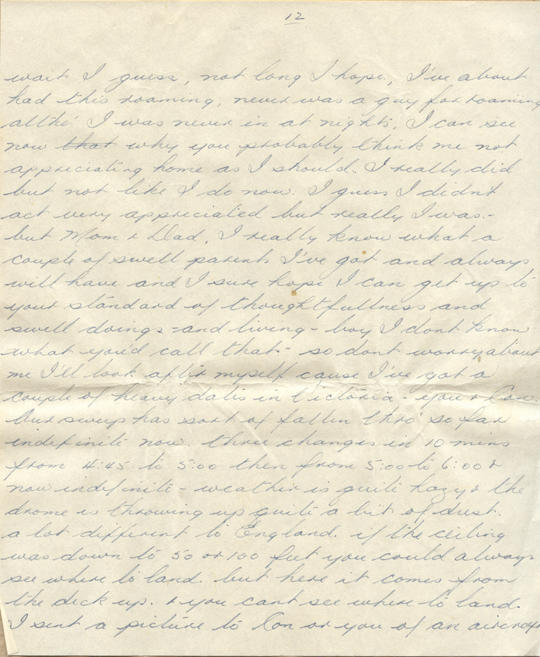 12
wait I guess, not long I hope, I've about
had this roaming, never was a guy for roaming
altho' I was never in at nights, I can see
now that why you probably think me not
appreciating home as I should. I really did
but not like I do now. I guess I didn't
act very appreciated but really I was.-
but Mom & Dad, I really know what a
couple of swell parents I've got and always
will have and I sure hope I can get up to
your standard of thoughtfullness and
swell doings - and living - boy I dont know
what you'd call that - so dont worry about
me I'll look after myself cause I've got a
couple of heavy dates in Victoria - you & Con.
Our sweep has sort of fallen thro' so far
indefinite now. three changes in 10 mins
from 4:45 to 5:00 then from 5:00 to 6:00 &
now indefinite - weather is quite hazy & the
drome is throwing up quite a bit of dust.
a lot different to England. if the ceiling
was down to 50 or 100 feet you could always
see where to land. but here it comes from
the deck up. & you cant see where to land.
I sent a picture to Con or you of an aircraft